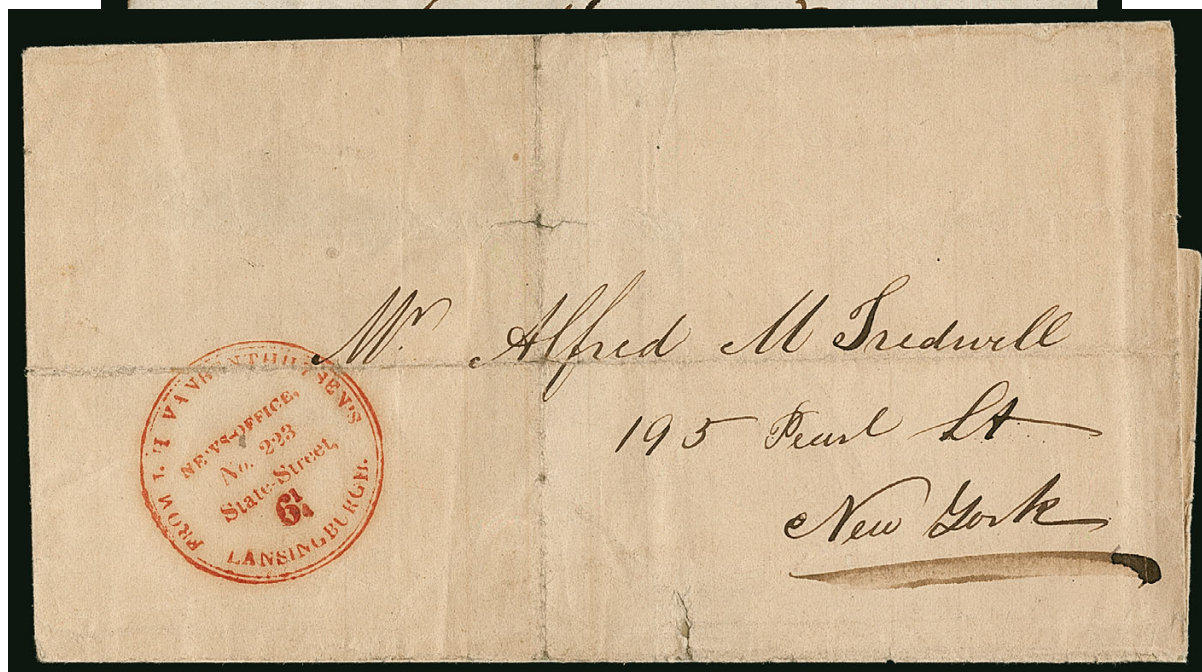 Mr. Alfred M Tredwell
195 Pearl St
New York
FROM
NEWS-OFFICE,
No. 223
State-Street,
6¼
LANSINGBURGH.